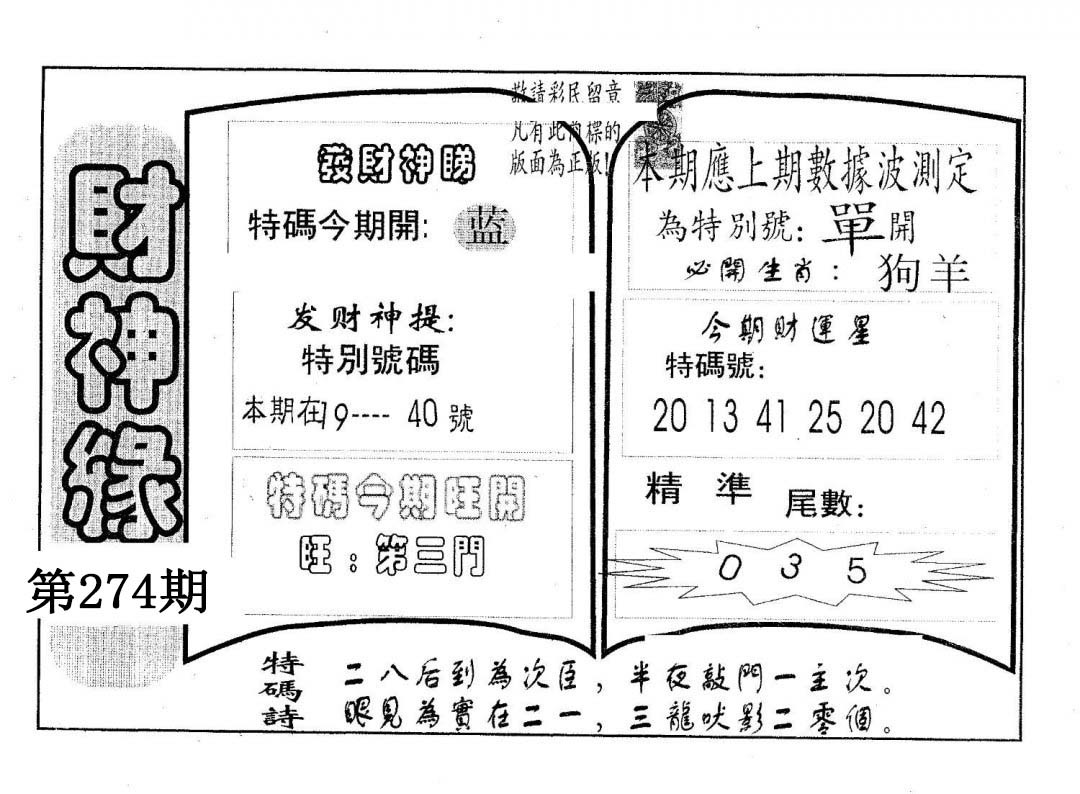 財神緣
第274期
敬請彩民留意
凡有此商標的
版面為正版!
發財神睇
特碼今期開: 蓝
发财神提:
特別號碼
本期在19---- 40號
特碼今期旺開
旺:第三門
本期應上期數據波測定
為特別號: 單開
必開生肖: 狗羊
今期財運星
特碼號:
20 13 41 25 20 42
精 準 尾數:
0 3 5
特碼詩
二八后到為次臣，半夜敲門一主次。
眼見為實在二一，三龍吠影二零個。